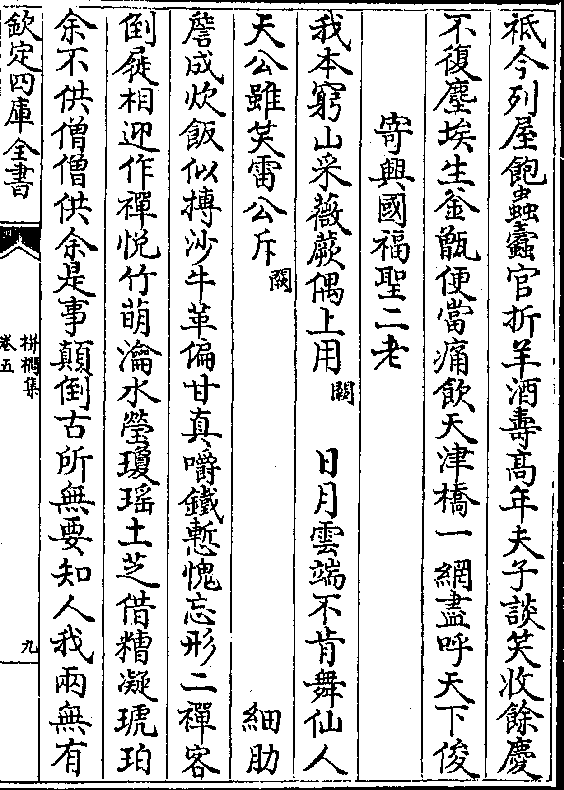 祗今列屋飽蟲蠹官折羊酒壽髙年夫子談笑收餘慶
不復塵埃生釜甑便當痛飲天津橋一網盡呼天下俊
寄興國福聖二老
我本窮山采薇蕨偶上用闕　日月雲端不肯舞仙人
天公雖笑雷公斥闕　細肋
詹成炊飯似摶沙牛革偏甘真嚼鐵慙愧忘形二禪客
倒屣相迎作禪悦竹萌瀹水瑩瓊瑶土芝借糟凝琥珀
余不供僧僧供余是事顛倒古所無要知人我兩無有
欽定四庫全書
栟櫚集
卷五
九